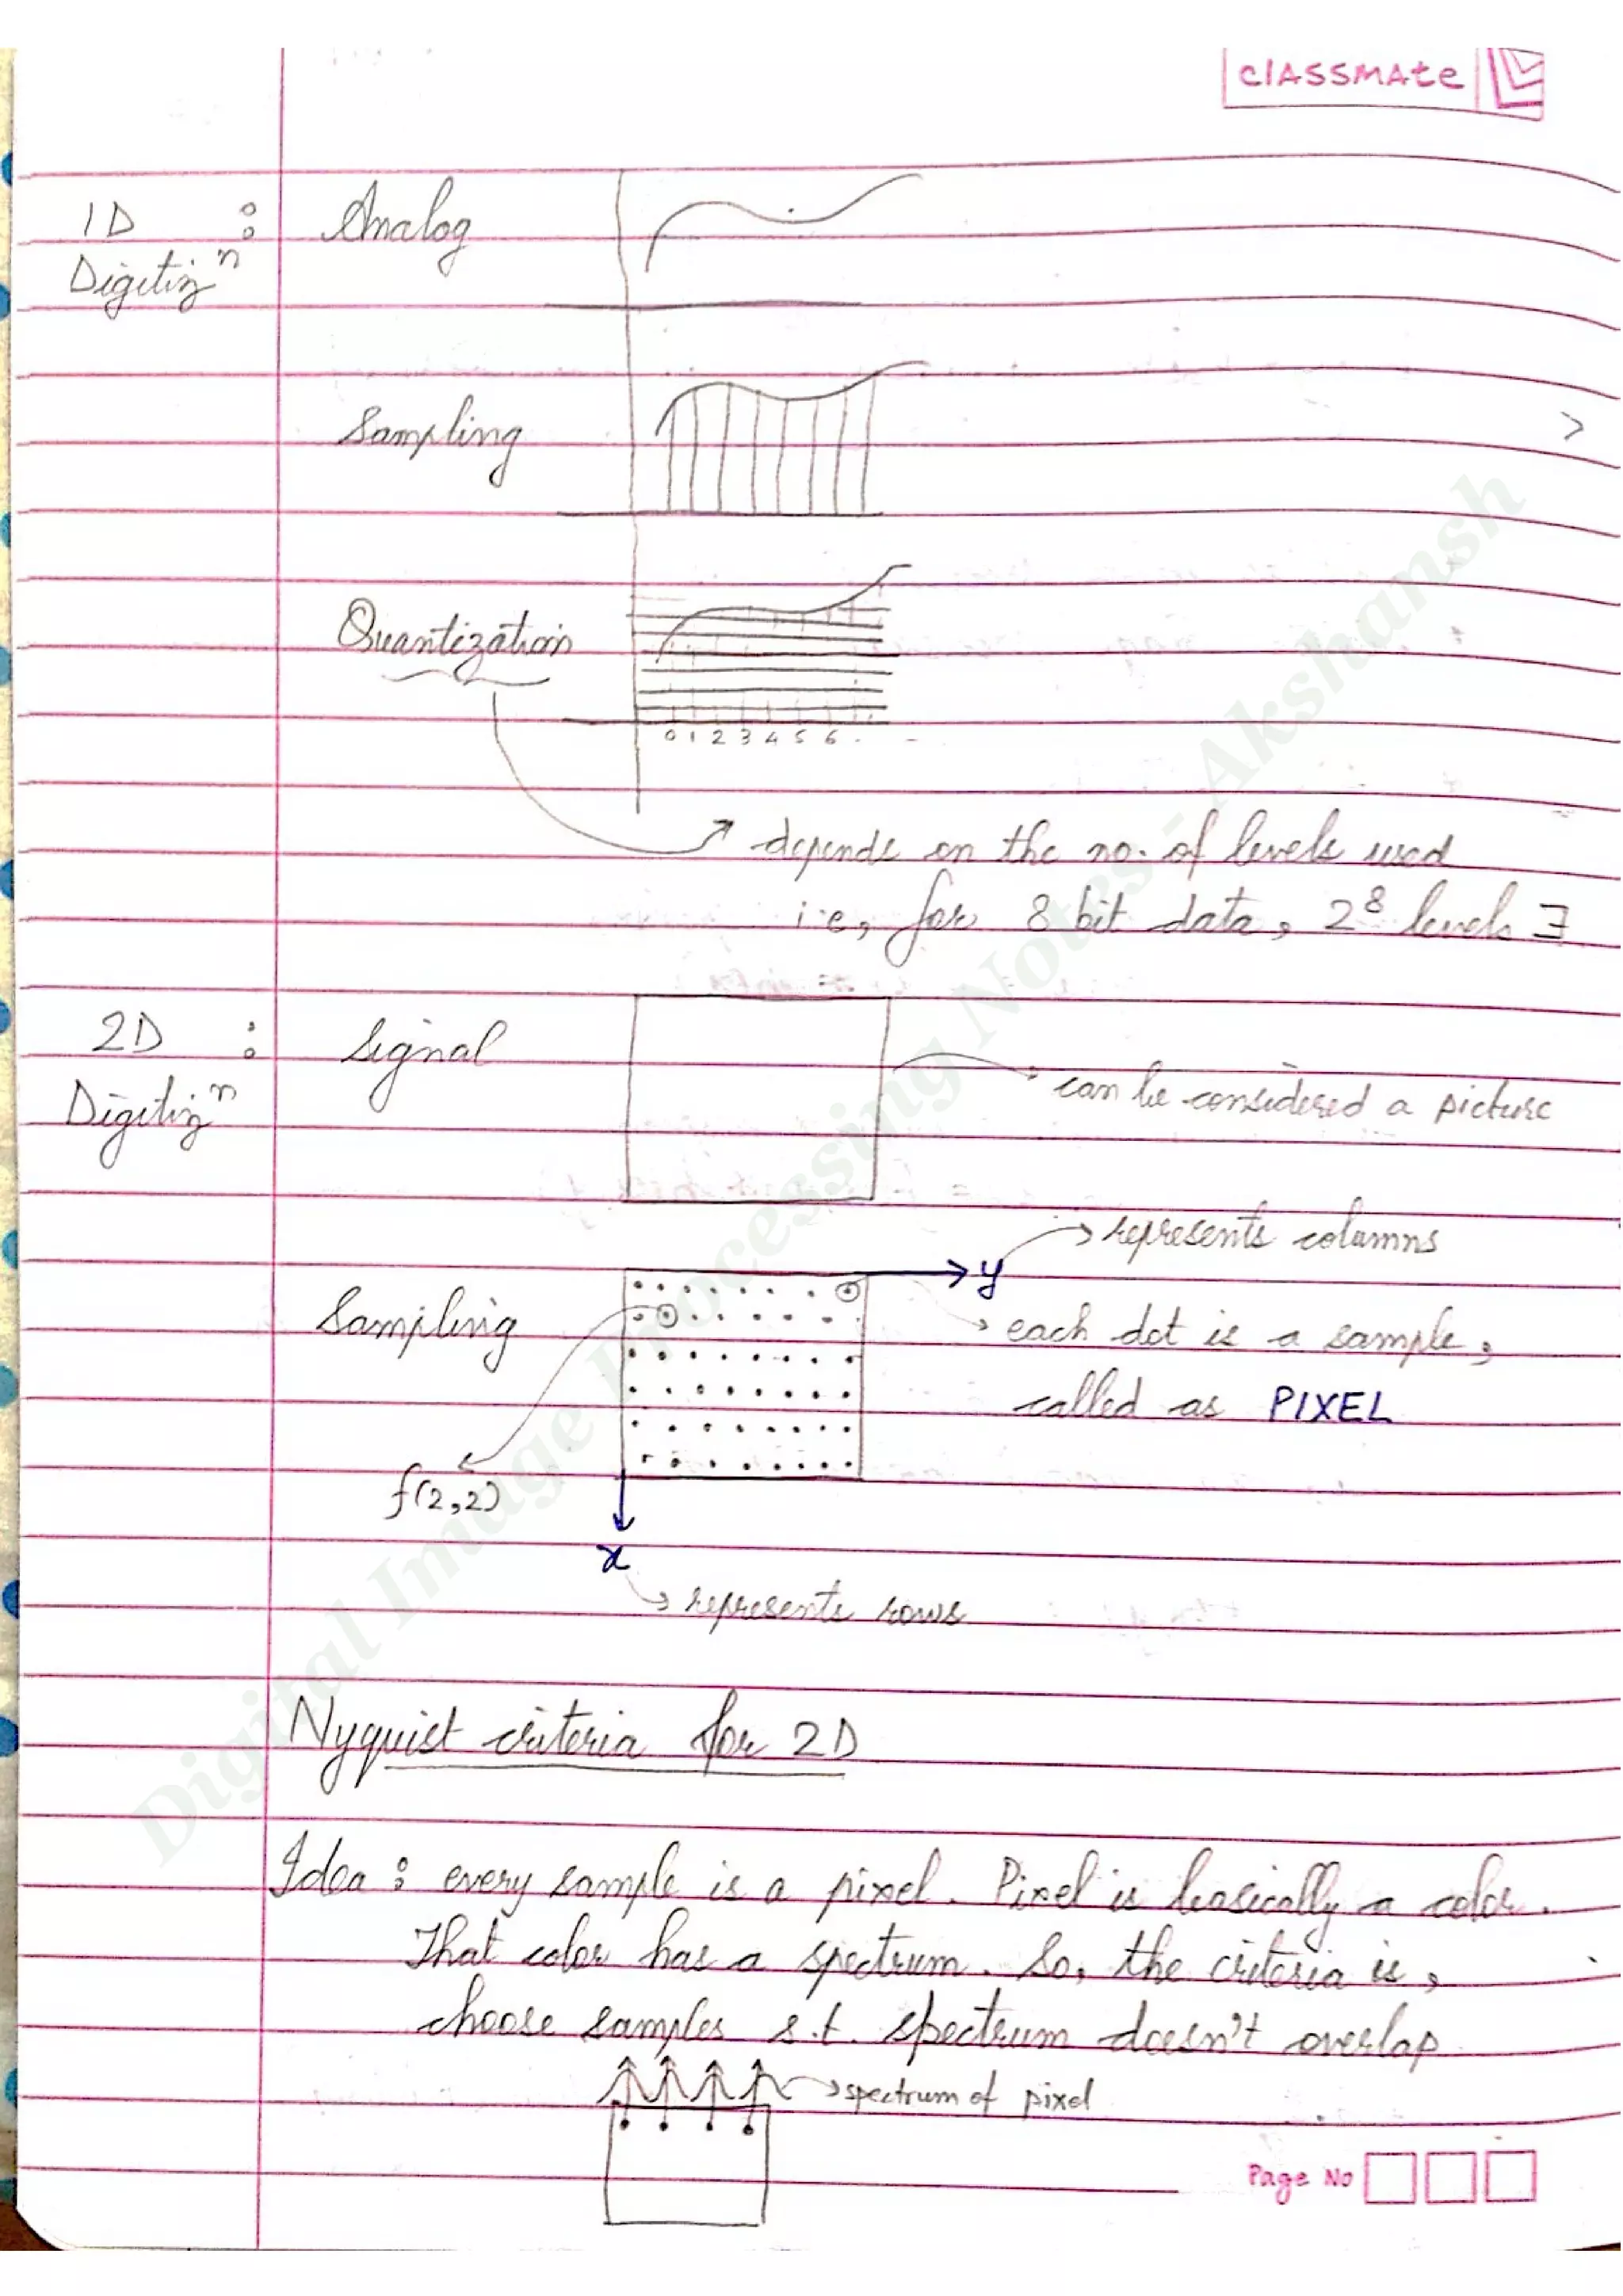 classmate
1D : Analog
Digitizⁿ
Sampling
>
Quantization
0 1 2 3 4 5 6 . -
depends on the no. of levels used
i.e, for 8 bit data, 2⁸ levels ∃
2D : Signal
Digitizⁿ
can be considered a picture
represents columns
y
Sampling
each dot is a sample,
called as PIXEL
f(2,2)
x
represents rows
Nyquist criteria for 2D
Idea : every sample is a pixel. Pixel is basically a color.
That color has a spectrum. So, the criteria is,
choose samples s.t. spectrum doesn't overlap
spectrum of pixel
Page No
Digital Image Processing Notes - Akshansh